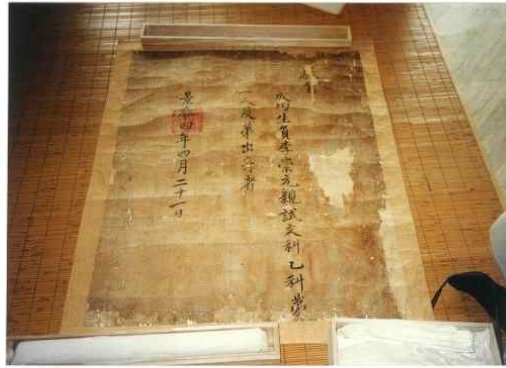 成均生員李崇元親試文科乙科第
一人及第出身者
景泰四年四月二十一日